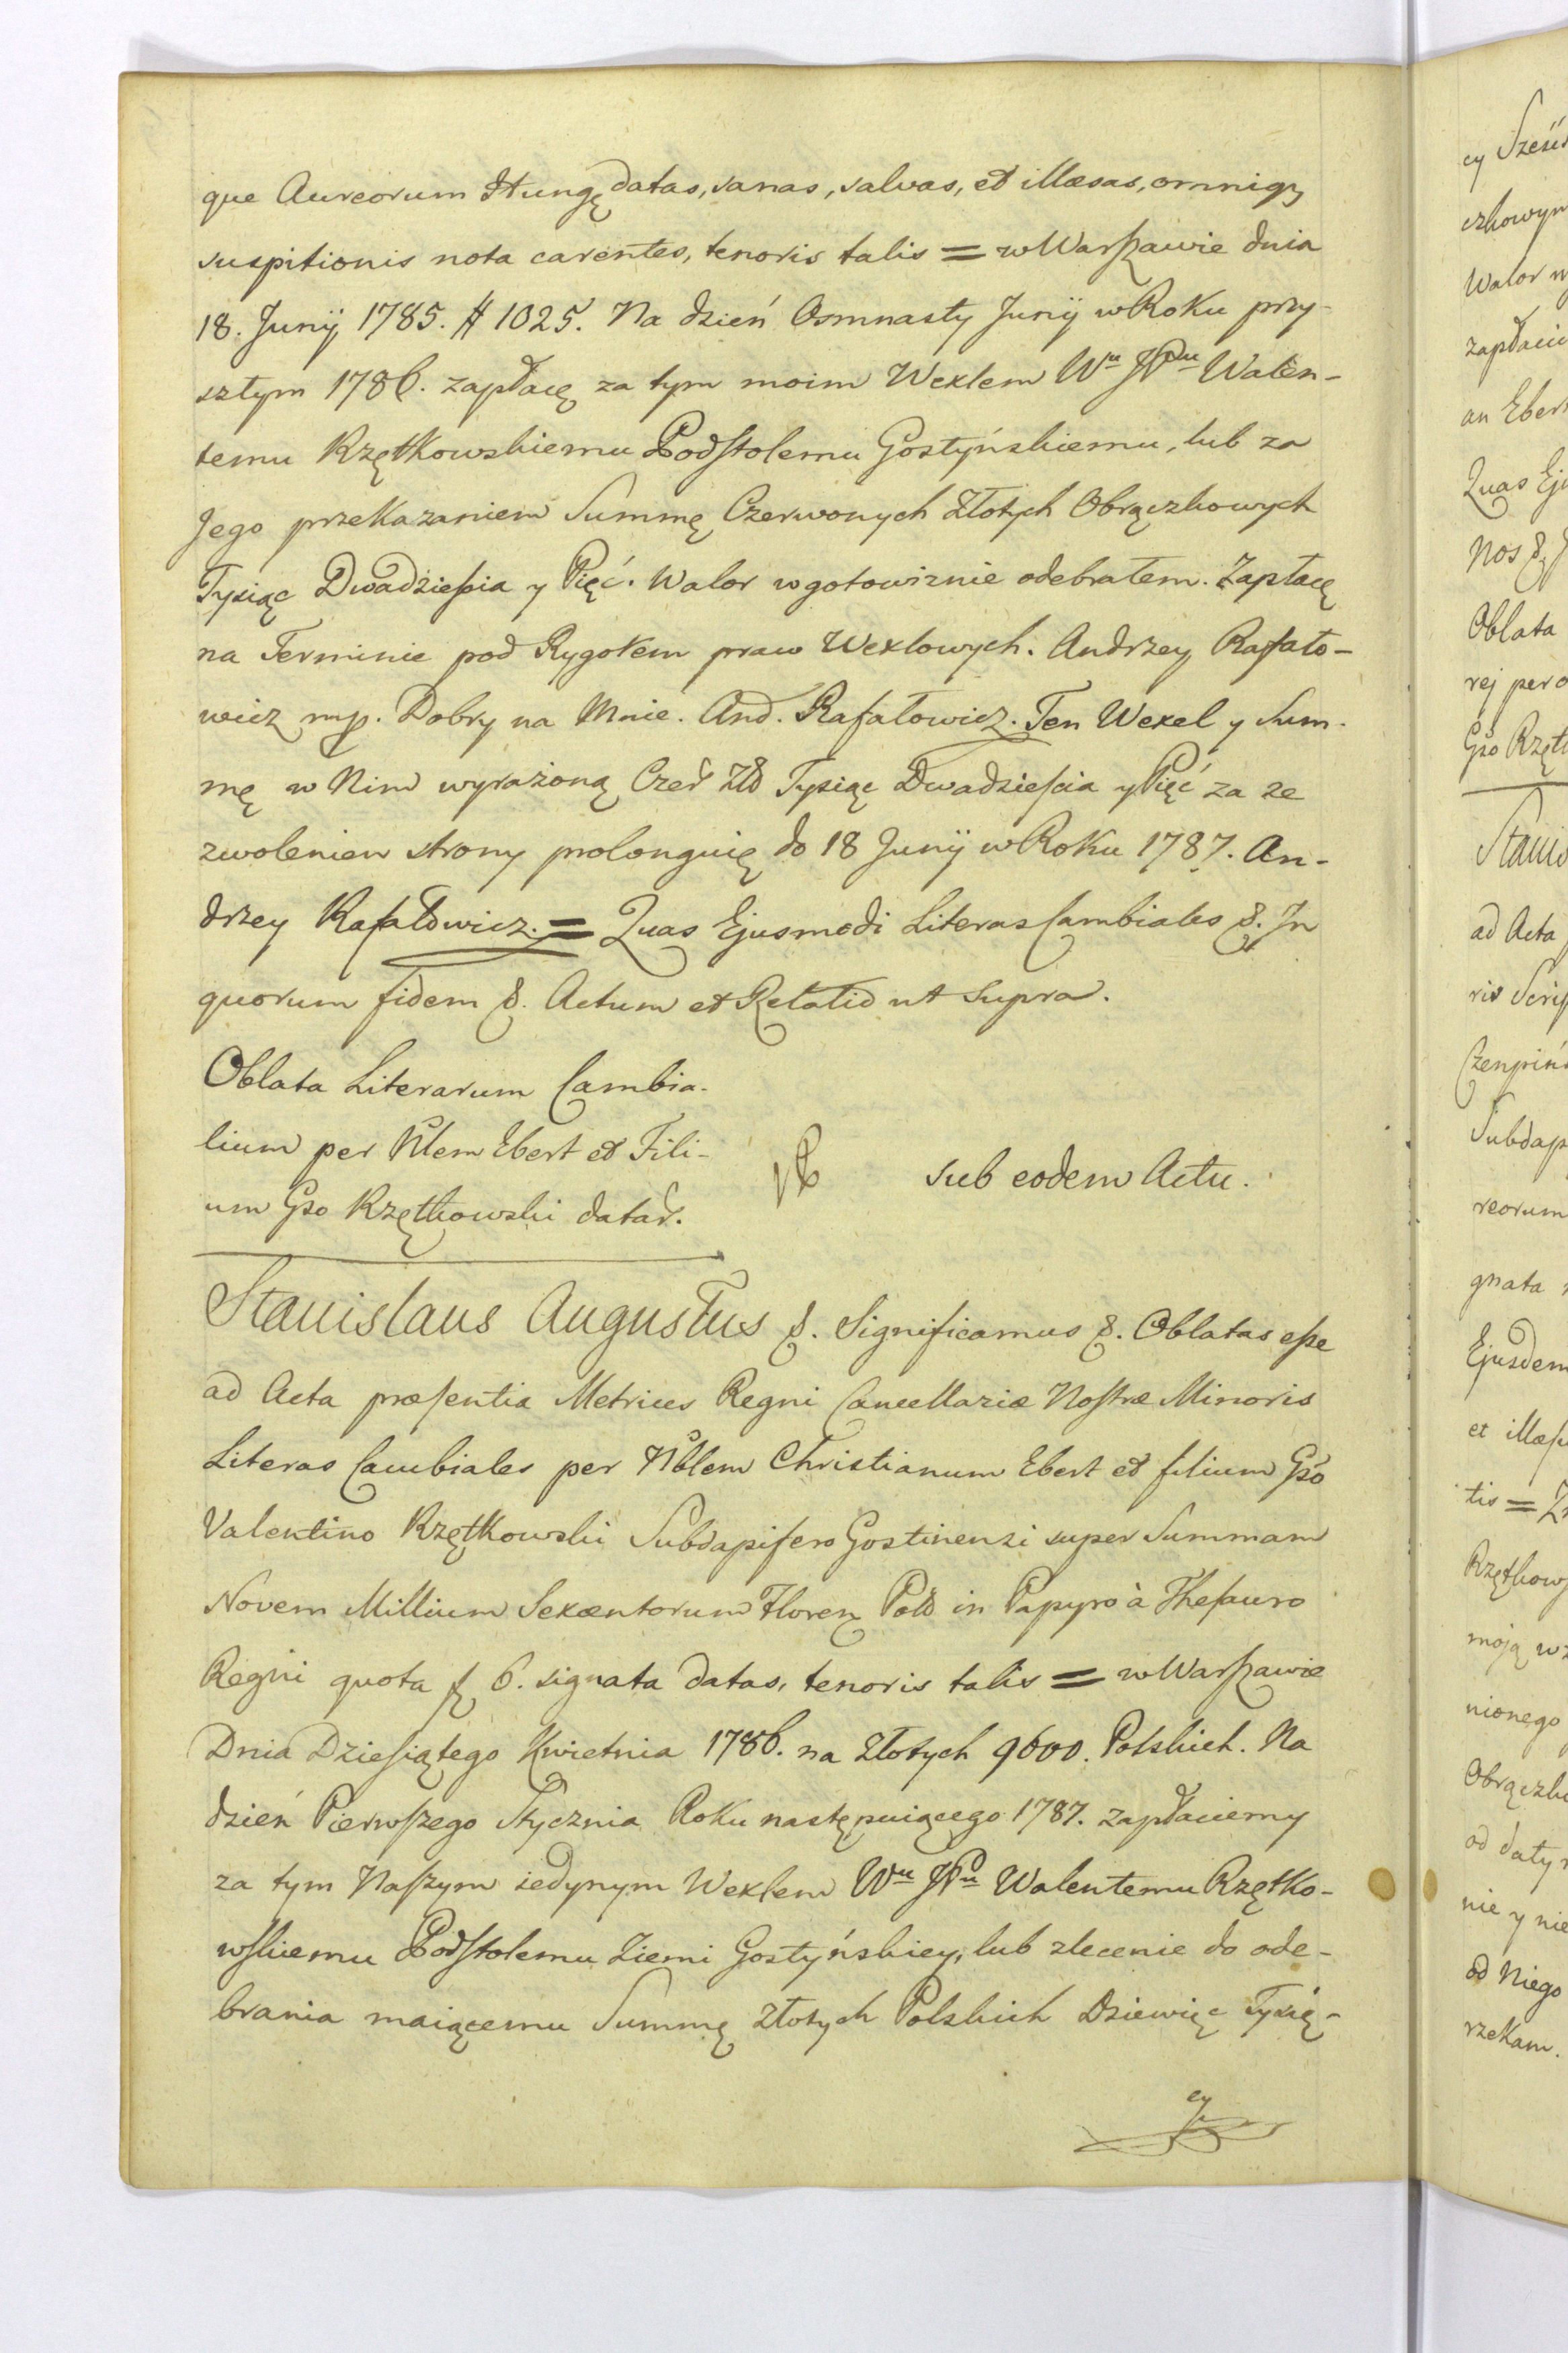 que Aureorum Hung datas, sanas, salvas, et illæsas, omniqȝ
suspitionis nota carentes, tenoris talis = w Warſzawie dnia
18. Junij 1785. # 1025. Na dzień Osmnasty Junij w Roku przy-
szłym 1786. zapłacę za tym moim Wexlem Wu JPu Walen-
temu Rzętkowskiemu Podſtolemu Gostyńskiemu, lub za
Jego przekazaniem Summę Czerwonych Złotych Obrączkowych
Tysiąc Dwadzieſcia y Pięć. Walor w gotowiznie odebrałem. Zapłacę
na Terminie pod Rygorem praw Wexlowych. Andrzey Rafało-
wicz mp. Dobry na Mnie. And. Rafałowicz. Ten Wexel y Sum-
mę w Nim wyrażoną Czer Zło Tysiąc Dwadzieſcia y Pięć za ze
zwoleniem strony prolonguię do 18 Junij w Roku 1787. An-
drzey Rafałowicz. = Quas Ejusmodi Literas Cambiales &. In
quorum fidem &. Actum et Relatio ut supra.
Oblata Literarum Cambia-
lium per Nblem Ebert et Fili-
um Gso Rzętkowski datar.
sub eodem Actu.
Stanislaus Augustus &. Significamus &. Oblatas eſse
ad Acta præſentia Metrices Regni Cancellariæ Noſtræ Minoris
Literas Cambiales per Nblem Christianum Ebert et filium Gso
Valentino Rzętkowski Subdapifero Gostinensi super Summam
Novem Millium Sexcentorum Floren Pol in Papyro à Theſauro
Regni quota f 6. signata datas, tenoris talis = w Warſzawie
Dnia Dzieſiątego Kwietnia 1786. na Złotych 9600. Polskich. Na
dzień Pierwſzego Stycznia Roku następuiącego 1787. zapłaciemy
za tym Naſzym iedynym Wexlem Wu JPu Walentemu Rzętko-
wſkiemu Podſtolemu Ziemi Gostyńskiey, lub zlecenie do ode-
brania maiącemu Summę Złotych Polskich Dziewięc Tysię-
cy
cy Sześć
czkowym
Walor w
zapłacie
an Eber
Quas Ej
Nos &
Oblata
rej per
Gso Rzęt
Stanis
ad Acta
ris Scrip
Czenpińs
Subdap
reorum
gnata
Ejusdem
et illæſ
tis =
Rzętkow
moją w
nionego
Obrączk
od daty
nie y nie
od Niego
rzekam.